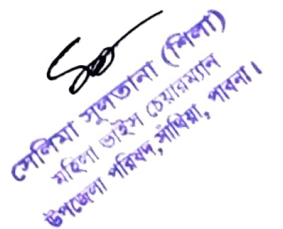 সেলিমা সুলতানা (শিলা)
মহিলা ভাইস চেয়ারম্যান
উপজেলা পরিষদ, সাঁথিয়া, পাবনা।